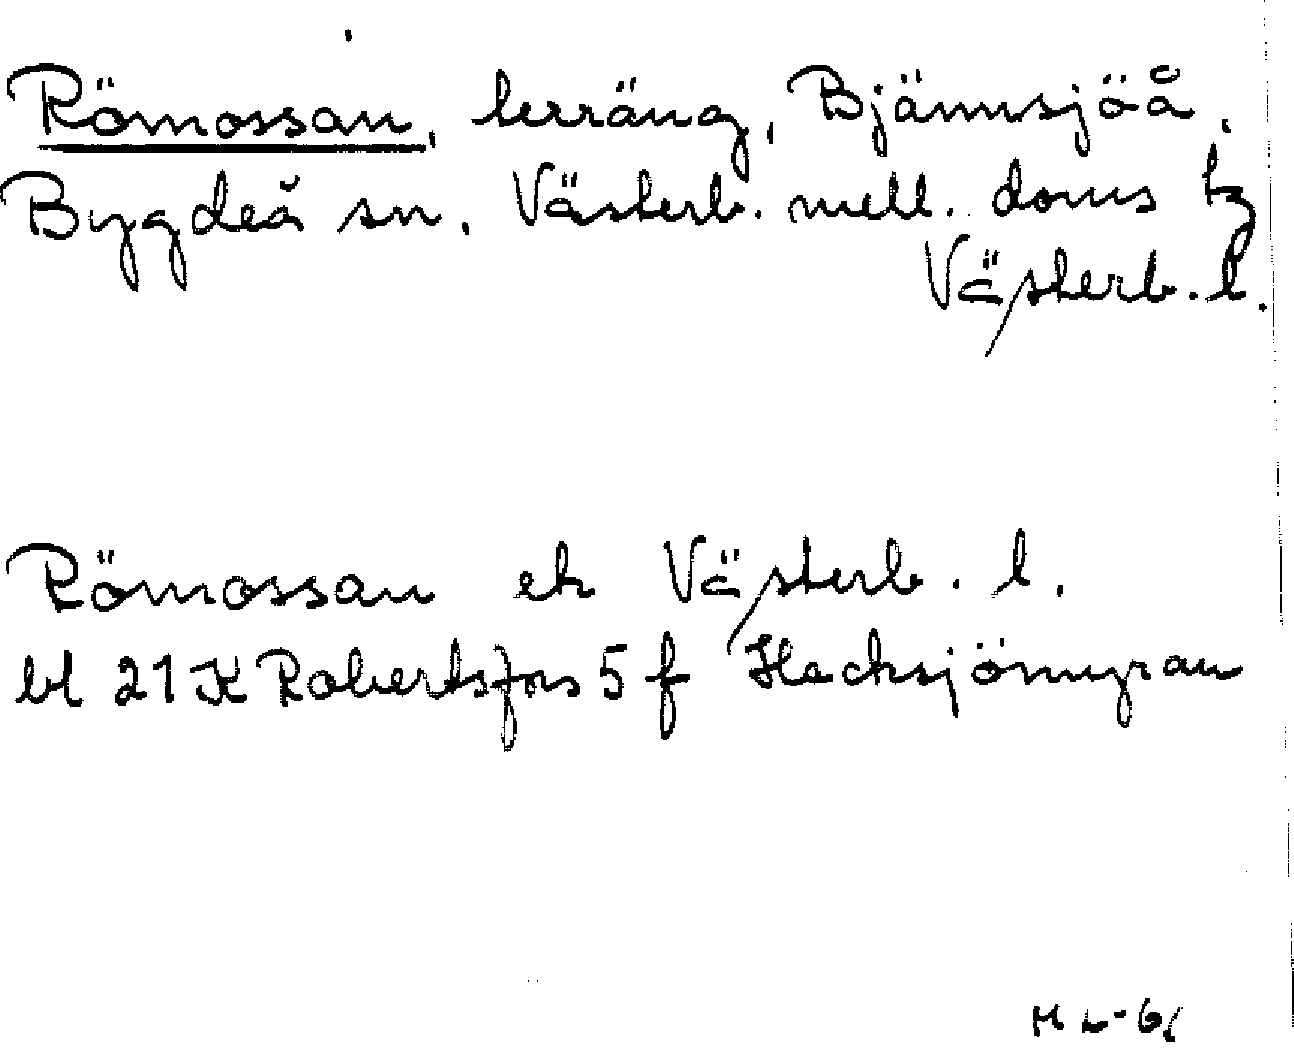 Römossan, terräng, Bjännsjöå,
Bygdeå sn. Västerb. mell. doms tg
Västerb. l.
Römossan ek Västerb. l.
bl 21K Robertsfors 5 f Hacksjömyran